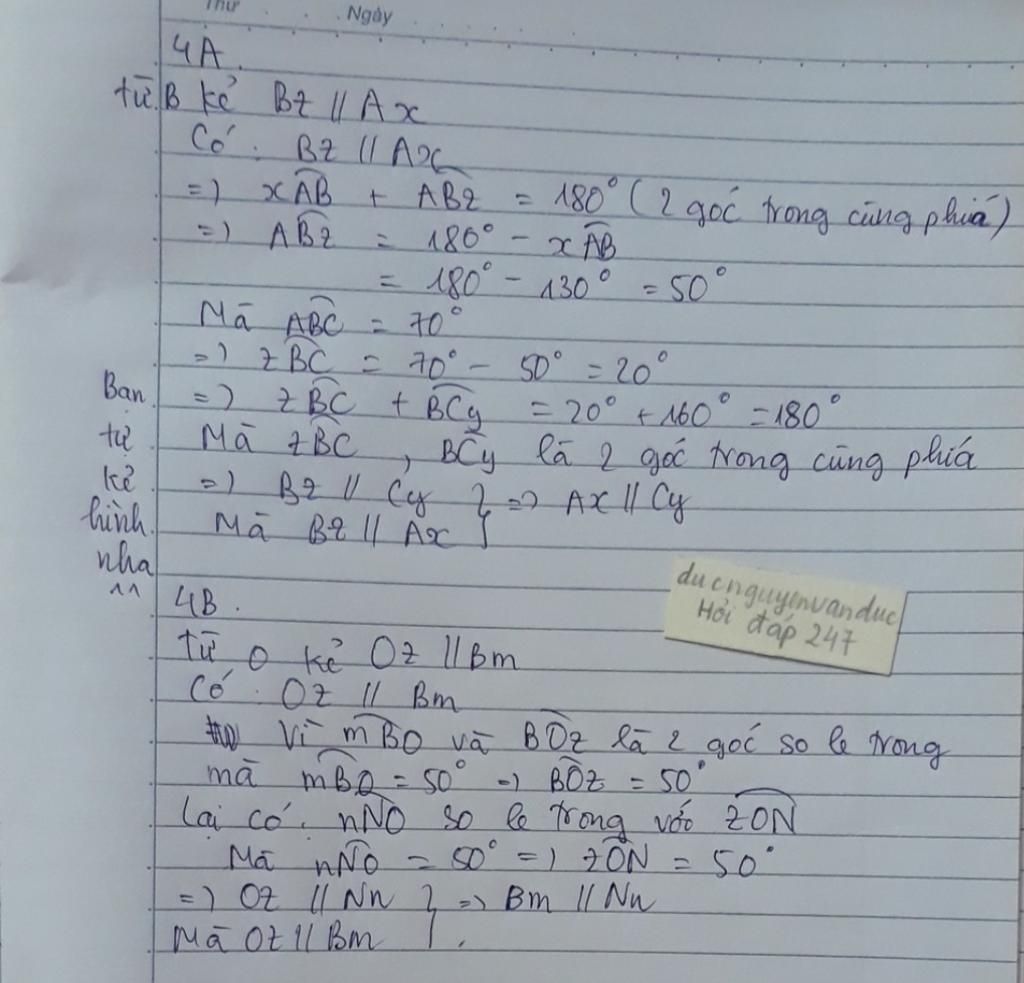 Thứ Ngày
4A.
từ B kẻ Bz // Ax
Có: Bz // Ax
=) xAB + ABz = 180° (2 góc trong cùng phiá)
=) ABz = 180° - xAB
= 180° - 130° = 50°
Mà ABC = 70°
=) zBC = 70° - 50° = 20°
=) zBC + BCy = 20° + 160° = 180°
Mà zBC, BCy là 2 góc trong cùng phiá
=) Bz // Cy } => Ax // Cy
Mà Bz // Ax
Bạn
tự
kẻ
hình
nha
^^
4B.
từ O kẻ Oz // Bm
Có: Oz // Bm
Vì mBO và BOz là 2 góc so le trong
mà mBO = 50° => BOz = 50°
Lại có: nNO so le trong với zON
Mà nNO = 50° =) zON = 50°
=) Oz // Nn } => Bm // Nn
Mà Oz // Bm
ducnguyenvanduc
Hỏi đáp 247